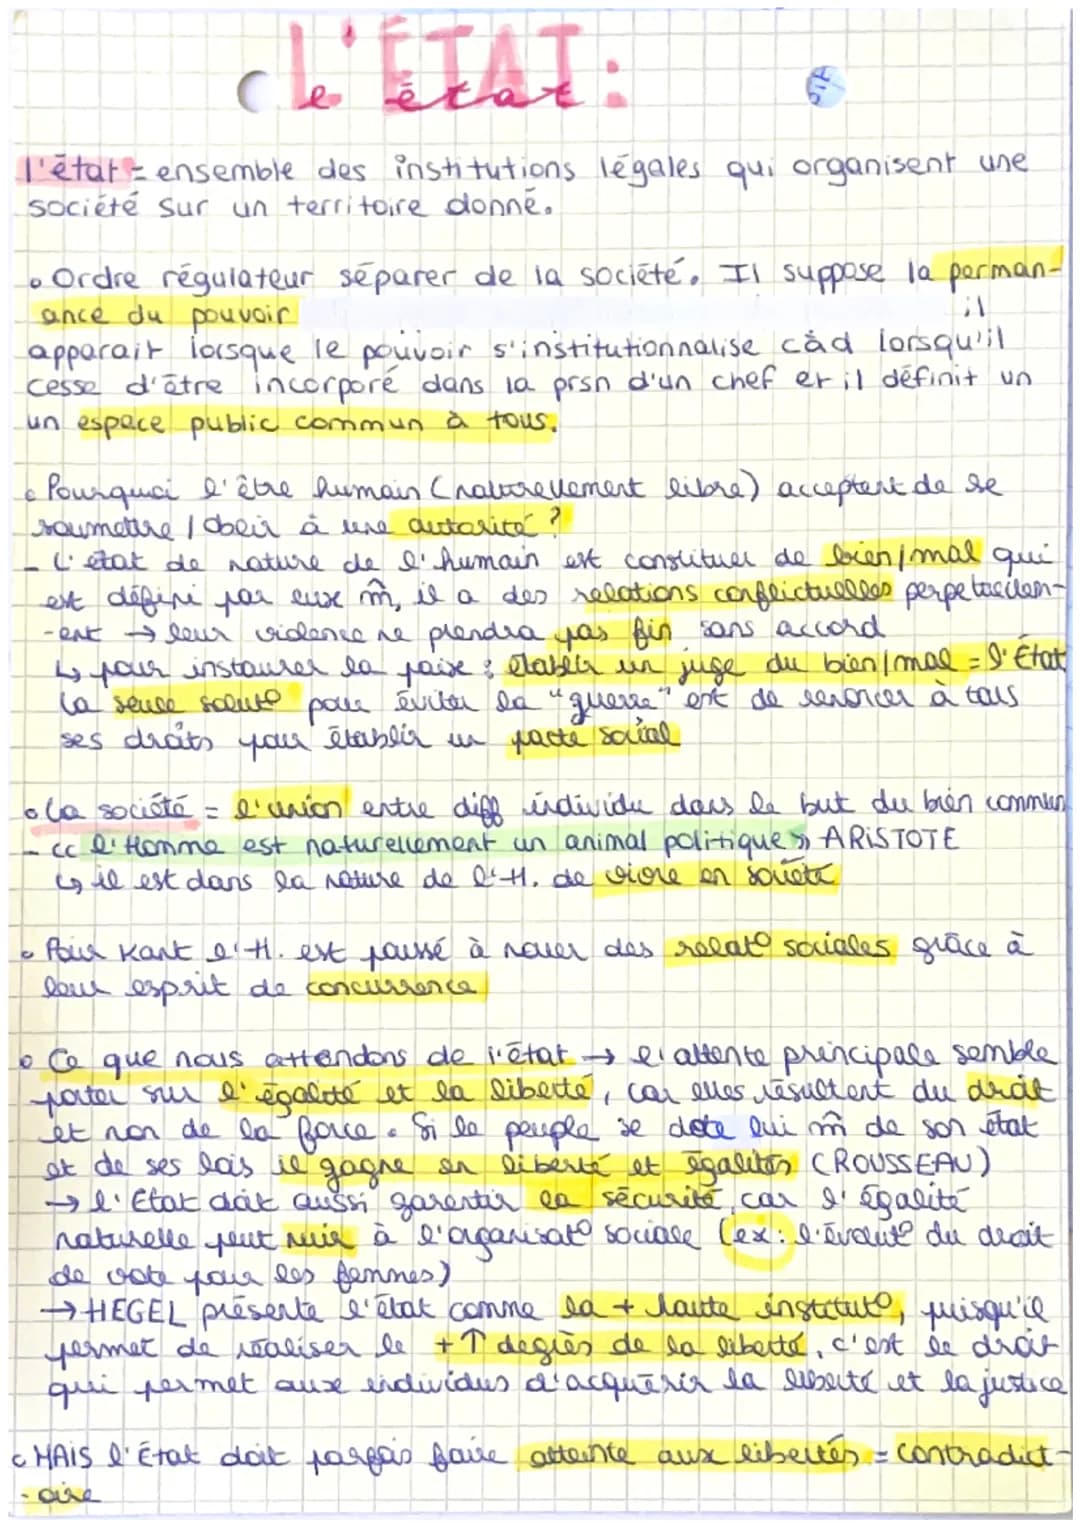 L'ÉTAT :
l'état
l'état = ensemble des institutions légales qui organisent une
société sur un territoire donné.
• Ordre régulateur séparer de la société. Il suppose la perman-
ance du pouvoir
il
apparait lorsque le pouvoir s'institutionnalise càd lorsqu'il
cesse d'être incorporé dans la prsn d'un chef et il définit un
un espace public commun à tous.
• Pourquoi l'être humain (naturellement libre) acceptent de se
soumettre / obeir à une autorité ?
- L'état de nature de l'humain est constituer de bien/mal qui
est défini par eux m̂, il a des relations conflictuelles perpetuellem-
-ent → leur violence ne prendra pas fin sans accord
↳ pour instaurer la paix : établir un juge du bien/mal = l'État
La seule solut° pour éviter la "guerre" est de renoncer à tous
ses droits pour établir un pacte social
• La société = l'union entre diff individu dans le but du bien commun
- « l'Homme est naturellement un animal politique » ARISTOTE
↳ il est dans la nature de l'H. de vivre en société
• Pour Kant l'H. est poussé à nouer des relat° sociales grâce à
leur esprit de concurrence
• Ce que nous attendons de l'état → l'attente principale semble
porter sur l'égalité et la liberté, car elles résultent du droit
et non de la force. Si le peuple se dote lui m̂ de son état
et de ses lois il gagne en liberté et égalités (ROUSSEAU)
→ l'État doit aussi garentir la sécurité car l'égalité
naturelle peut nuir à l'organisat° sociale (ex : l'évolut° du droit
de vote pour les femmes)
→ HEGEL présente l'état comme la + haute institut°, puisqu'il
permet de réaliser le + ↑ degrès de la liberté, c'est le droit
qui permet aux individus d'acquérir la liberté et la justice
• MAIS l'État doit parfois faire atteinte aux libertés = contradict-
-oire